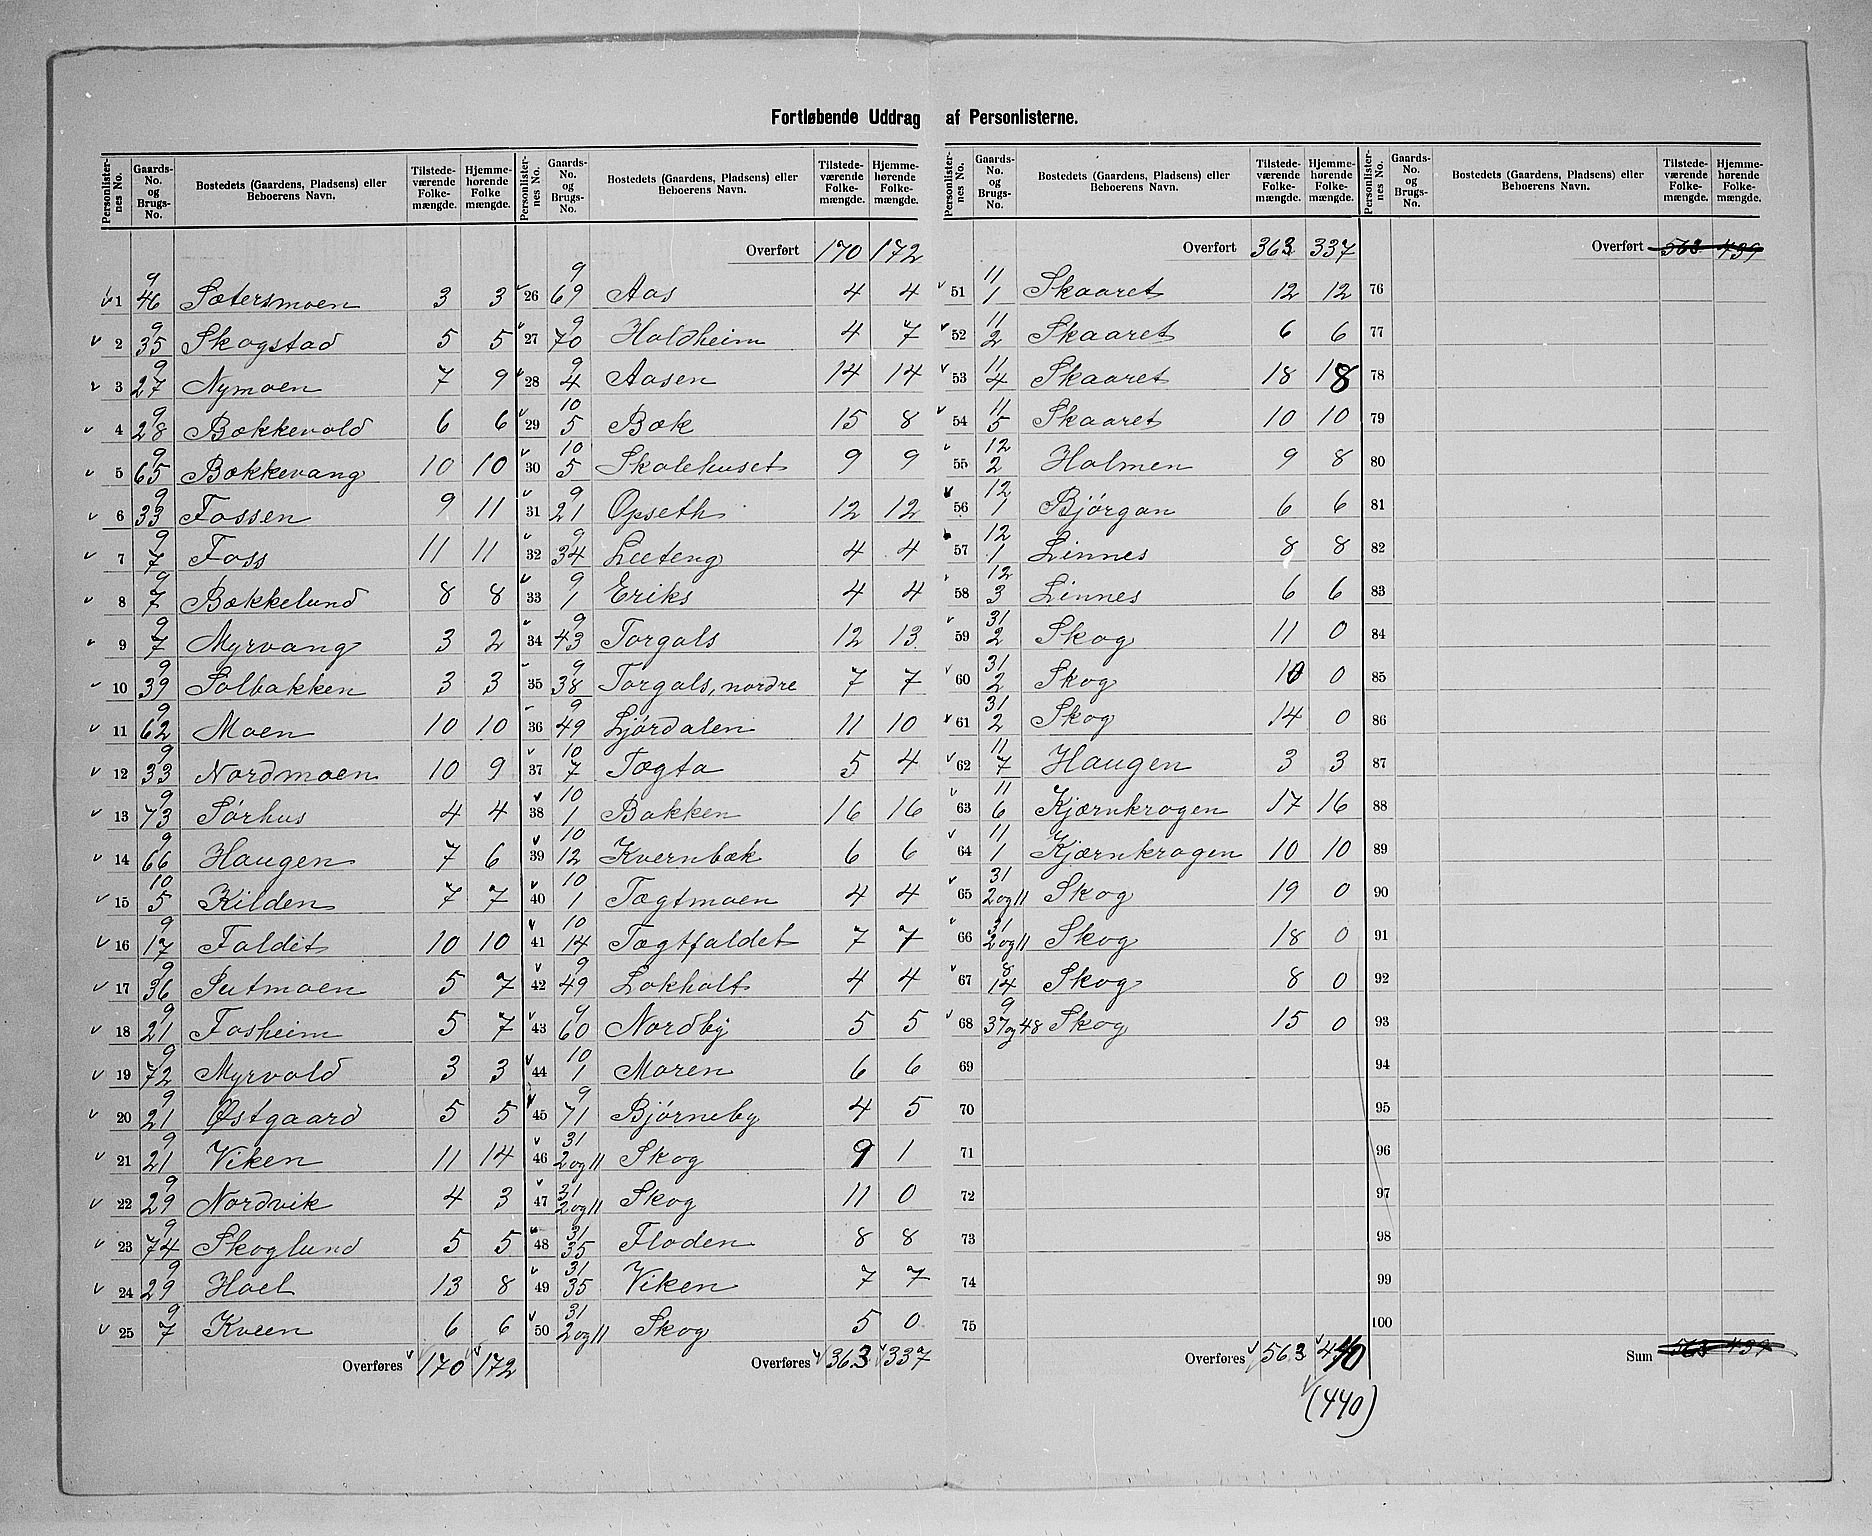 Fortløbende Uddrag af Personlisterne.
Personlister-nes No. | Gaards-No. og Brugs-No. | Bostedets (Gaardens, Pladsens) eller Beboerens Navn. | Tilstede-værende Folke-mængde. | Hjemme-hørende Folke mængde.
1 | 9/46 | Sætersmoen | 3 | 3
2 | 9/35 | Skogstad | 5 | 5
3 | 9/27 | Nymoen | 7 | 9
4 | 9/28 | Bækkevold | 6 | 6
5 | 9/65 | Bækkevang | 10 | 10
6 | 9/33 | Fossen | 9 | 11
7 | 9/7 | Foss | 11 | 11
8 | 9/7 | Bækkelund | 8 | 8
9 | 9/7 | Myrvang | 3 | 2
10 | 9/39 | Solbakken | 3 | 3
11 | 9/62 | Moen | 10 | 10
12 | 9/33 | Nordmoen | 10 | 9
13 | 9/73 | Sørhus | 4 | 4
14 | 9/66 | Haugen | 7 | 6
15 | 10/5 | Kilden | 7 | 7
16 | 9/17 | Faldet | 10 | 10
17 | 9/36 | Sutmoen | 5 | 7
18 | 9/21 | Fosheim | 5 | 7
19 | 9/72 | Myrvold | 3 | 3
20 | 9/21 | Østgaard | 5 | 5
21 | 9/21 | Viken | 11 | 14
22 | 9/29 | Nordvik | 4 | 3
23 | 9/74 | Skoglund | 5 | 5
24 | 9/29 | Hoel | 13 | 8
25 | 9/7 | Kveen | 6 | 6
Overføres | 170 | 172
Personlister-nes No. | Gaards-No. og Brugs-No. | Bostedets (Gaardens, Pladsens) eller Beboerens Navn. | Tilstede-værende Folke-mængde. | Hjemme-hørende Folke-mængde.
Overført | 170 | 172
26 | 9/69 | Aas | 4 | 4
27 | 9/70 | Holdheim | 4 | 7
28 | 9/4 | Aasen | 14 | 14
29 | 10/5 | Bæk | 15 | 8
30 | 10/5 | Skolehuset | 9 | 9
31 | 9/21 | Opseth | 12 | 12
32 | 9/34 | Lieteng | 4 | 4
33 | 9/1 | Eriks | 4 | 4
34 | 9/43 | Torgals | 12 | 13
35 | 9/38 | Torgals, nordre | 7 | 7
36 | 9/49 | Ljørdalen | 11 | 10
37 | 10/7 | Tægta | 5 | 4
38 | 10/1 | Bakken | 16 | 16
39 | 10/12 | Kvernbæk | 6 | 6
40 | 10/1 | Tægtmoen | 4 | 4
41 | 10/14 | Tægtfaldet | 7 | 7
42 | 9/49 | Lokholt | 4 | 4
43 | 9/60 | Nordby | 5 | 5
44 | 10/1 | Moren | 6 | 6
45 | 9/71 | Bjørneby | 4 | 5
46 | 31/2 og 11 | Skog | 9 | 1
47 | 31/2 og 11 | Skog | 11 | 0
48 | 31/35 | Floden | 8 | 8
49 | 31/35 | Viken | 7 | 7
50 | 31/2 og 11 | Skog | 5 | 0
Overføres | 363 | 337
Personlister-nes No. | Gaards-No. og Brugs-No. | Bostedets (Gaardens, Pladsens) eller Beboerens Navn. | Tilstede-værende Folke-mængde. | Hjemme-hørende Folke-mængde.
Overført | 363 | 337
51 | 11/1 | Skaaret | 12 | 12
52 | 11/2 | Skaaret | 6 | 6
53 | 11/4 | Skaaret | 18 | 18
54 | 11/5 | Skaaret | 10 | 10
55 | 12/2 | Holmen | 9 | 8
56 | 12/1 | Bjørgan | 6 | 6
57 | 12/1 | Linnes | 8 | 8
58 | 12/3 | Linnes | 6 | 6
59 | 31/2 | Skog | 11 | 0
60 | 31/2 | Skog | 10 | 0
61 | 31/2 | Skog | 14 | 0
62 | 11/7 | Haugen | 3 | 3
63 | 11/6 | Kjærnkrogen | 17 | 16
64 | 11/1 | Kjærnkrogen | 10 | 10
65 | 31/2 og 11 | Skog | 19 | 0
66 | 31/2 og 11 | Skog | 18 | 0
67 | 8/14 | Skog | 8 | 0
68 | 9/37 og 48 | Skog | 15 | 0
69
70
71
72
73
74
75
Overføres | 563 | 440
(440)
Personlister-nes No. | Gaards-No. og Brugs-No. | Bostedets (Gaardens, Pladsens) eller Beboerens Navn. | Tilstede-værende Folke-mængde. | Hjemme-hørende Folke-mængde.
Overført | 563 | 439
76
77
78
79
80
81
82
83
84
85
86
87
88
89
90
91
92
93
94
95
96
97
98
99
100
Sum | 563 | 439